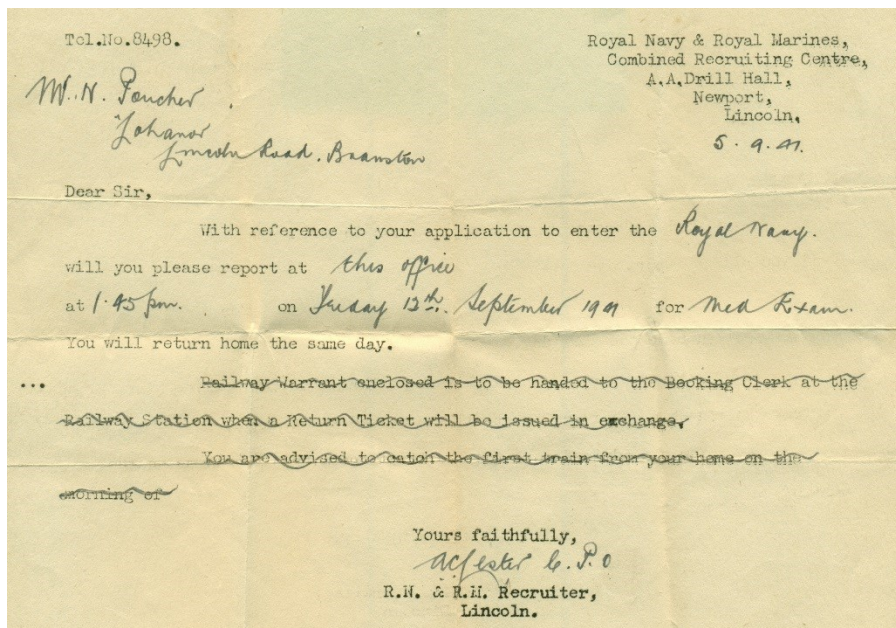 Tel.No.8498.
Royal Navy & Royal Marines,
Combined Recruiting Centre,
A.A.Drill Hall,
Newport,
Lincoln.
5. 9. 41.
Mr. N. Poucher
Lincoln Road. Branston
Dear Sir,
With reference to your application to enter the Royal Navy.
will you please report at this office
at 1.45 pm. on Friday 12th. September 1941 for Med Exam.
You will return home the same day.
... Railway Warrant enclosed is to be handed to the Booking Clerk at the
Railway Station when a Return Ticket will be issued in exchange.
You are advised to catch the first train from your home on the
morning of
Yours faithfully,
C. P. O
R.N. & R.M. Recruiter,
Lincoln.